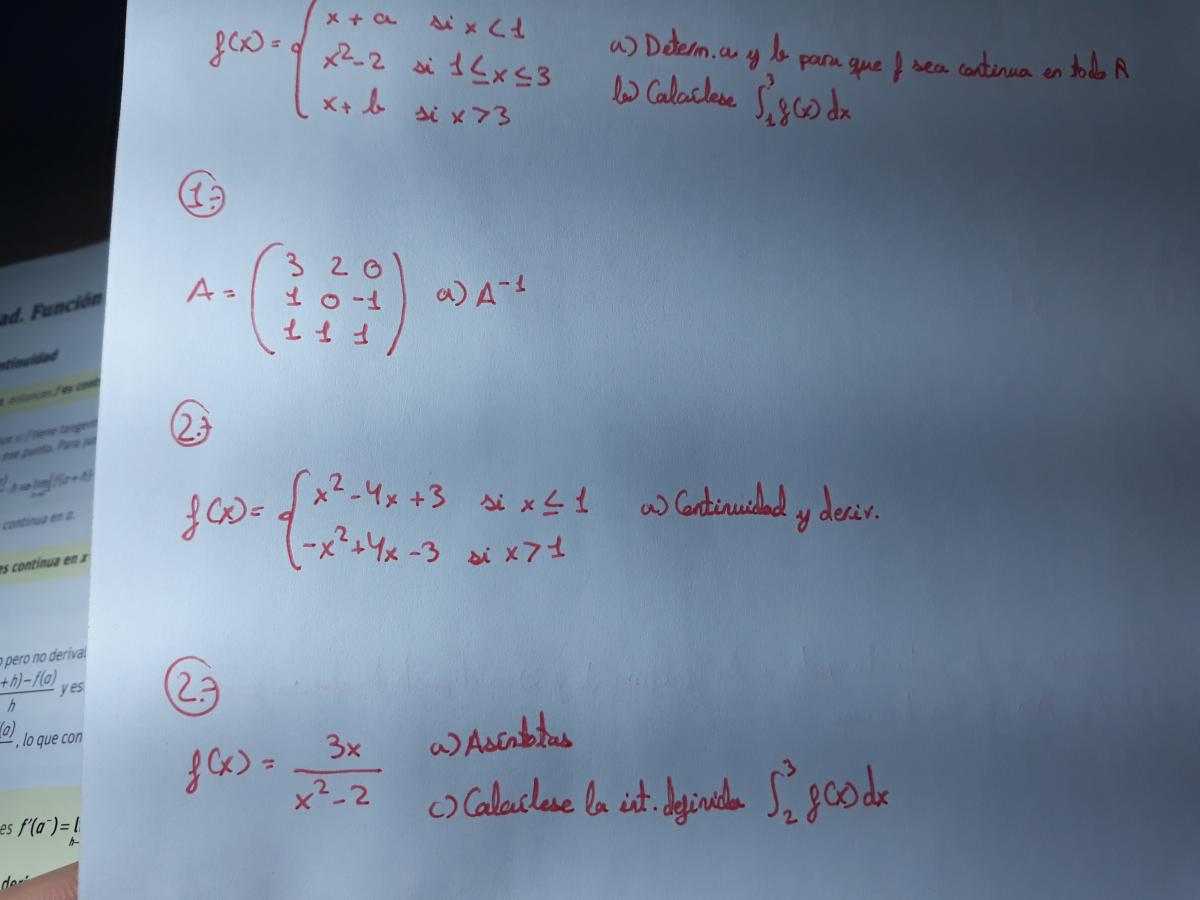 f(x) = { x + a si x < 1
x² - 2 si 1 ≤ x ≤ 3
x + b si x > 3
a) Determ. a y b para que f sea continua en todo R
b) Calcúlese ∫₁³ f(x) dx
1.-
A = ( 3 2 0
1 0 -1
1 1 1 ) a) A⁻¹
2.-
f(x) = { x² - 4x + 3 si x ≤ 1 a) Continuidad y deriv.
-x² + 4x - 3 si x > 1
2.-
f(x) = 3x / (x² - 2)
a) Asíntotas
c) Calcúlese la int. definida ∫₂³ f(x) dx
ad. Función
es cont
continua en a.
es continua en x
pero no deriva
+h)-f(a)
h
y es
, lo que con
es f'(a⁻) = l